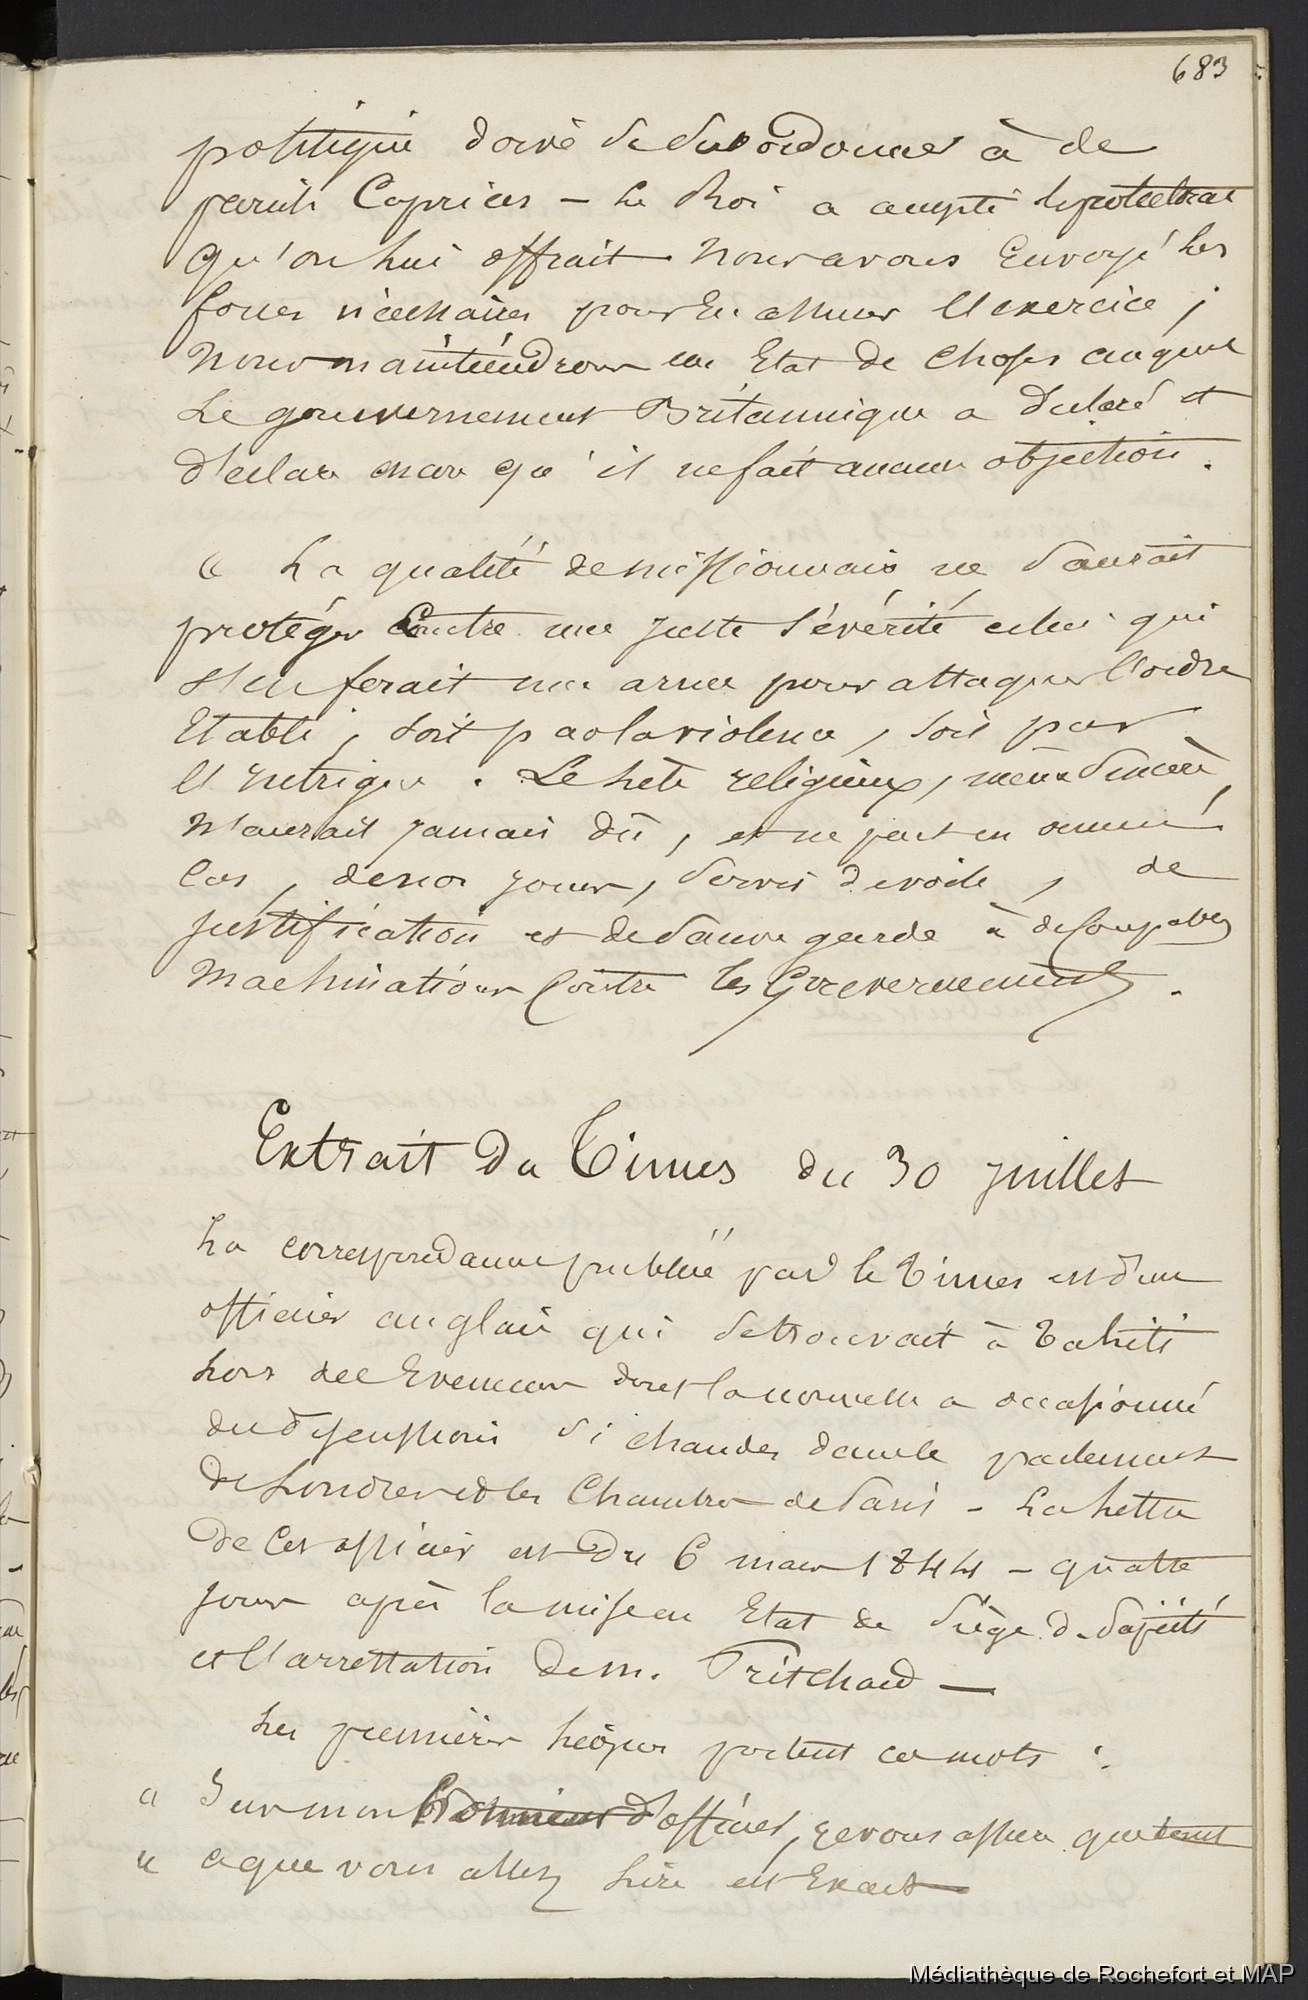 683
politique doive se subordonner à de
pareils Caprices – Le Roi a accepté le protectorat
qu'on lui offrait nous avons Envoyé les
forces nécessaires pour En assurer l'exercice ;
nous maintiendrons un Etat de choses auquel
Le gouvernement Britannique a declaré et
déclare encore qu'il ne fait aucune objection .
" La qualité de missionnaire ne saurait
protéger Contre une juste sévérité celui qui
s'en ferait une arme pour attaquer l'ordre
Etabli, soit par la violence, soit par
l'intrigue . Le zèle religieux, même sincère,
n'aurait jamais dû, et ne peut en aucun
Cas, de nos jours, servir de voile, de
justification et de sauvegarde à de Coupables
Machinations Contre les Gouvernements .
Extrait Du Times du 30 juillet
La correspondance publiée par le Times est d'un
officier anglais qui se trouvait à Tahiti
lors des Evenemens dont la nouvelle a occasionné
des discussions si chaudes dans le parlement
de Londres et les Chambres de Paris – La lettre
De Cet officier est Du 6 mars 1844 – quatre
jours après la mise en Etat de siège de Papeïti
et l'arrestation de m. Pritchard —
Les premières lignes portent ces mots :
" Sur mon d'officier, je vous assure que tout
" ce que vous allez lire est Exact —
Médiathèque de Rochefort et MAP